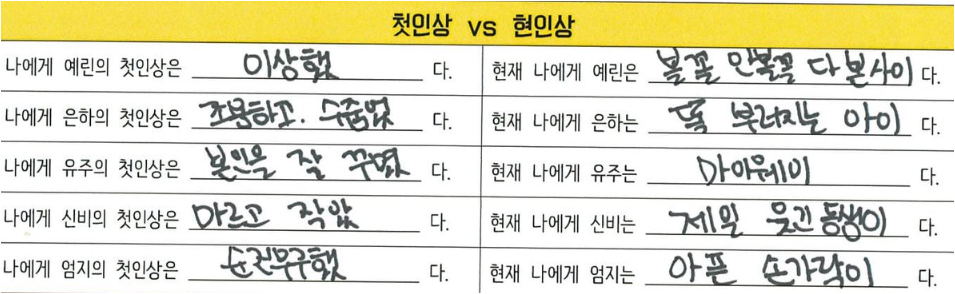 첫인상 vs 현인상
나에게 예린의 첫인상은 이상했 다. 현재 나에게 예린은 볼꼴 안볼꼴 다 본사이 다.
나에게 은하의 첫인상은 조용하고. 수줍었 다. 현재 나에게 은하는 똑 부러지는 아이 다.
나에게 유주의 첫인상은 본인을 잘 꾸몄 다. 현재 나에게 유주는 마이웨이 다.
나에게 신비의 첫인상은 마르고 작았 다. 현재 나에게 신비는 제일 웃긴 동생이 다.
나에게 엄지의 첫인상은 순진무구했 다. 현재 나에게 엄지는 아픈 손가락이 다.